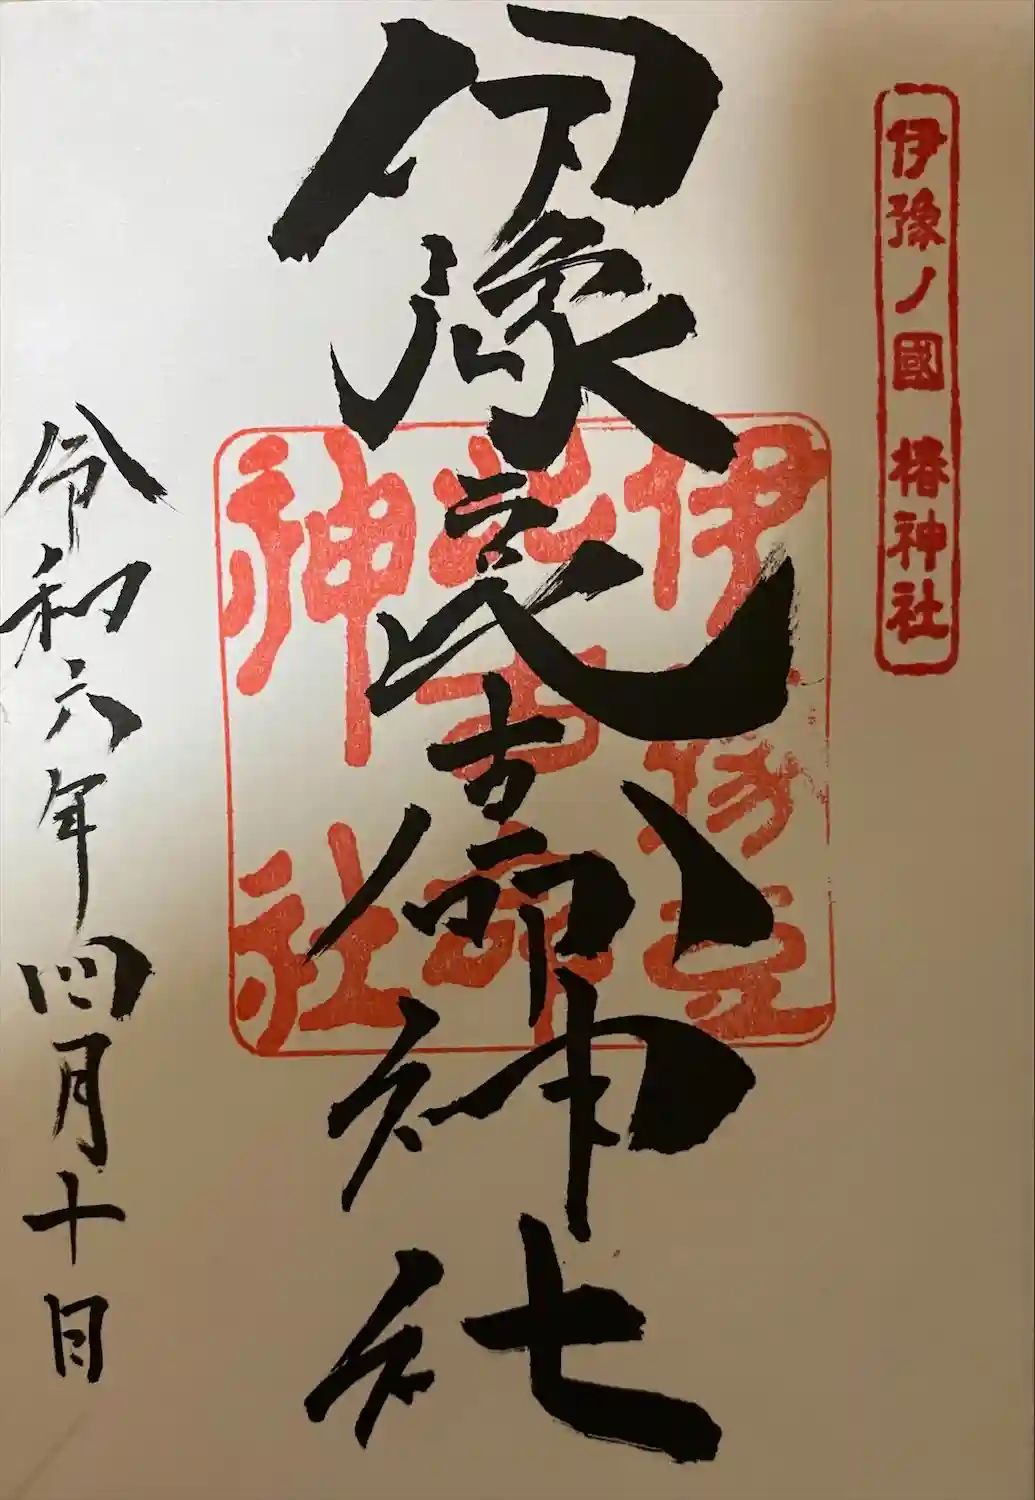 伊豫ノ國 椿神社
伊豫豆比古命神社
伊豫豆
比古命
神社
令和六年四月十日